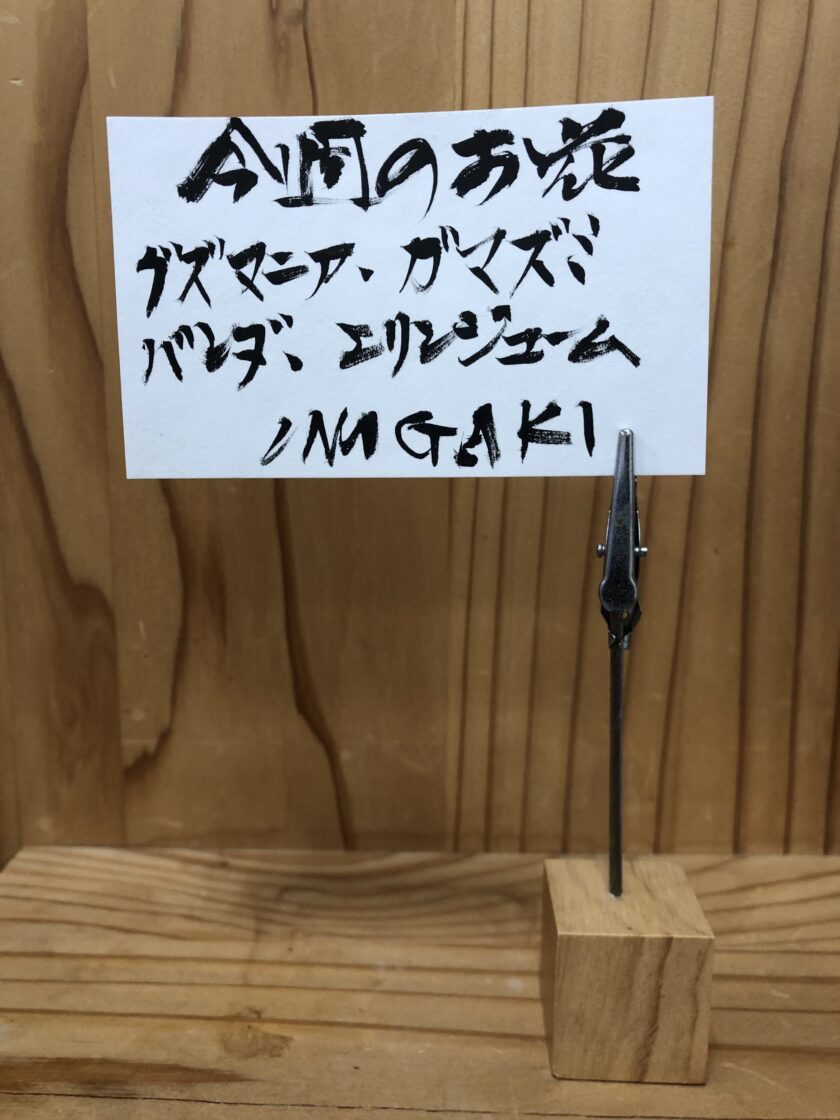 今週のお花
グズマニア、ガマズミ
バンダ、エリンジューム
INAGAKI